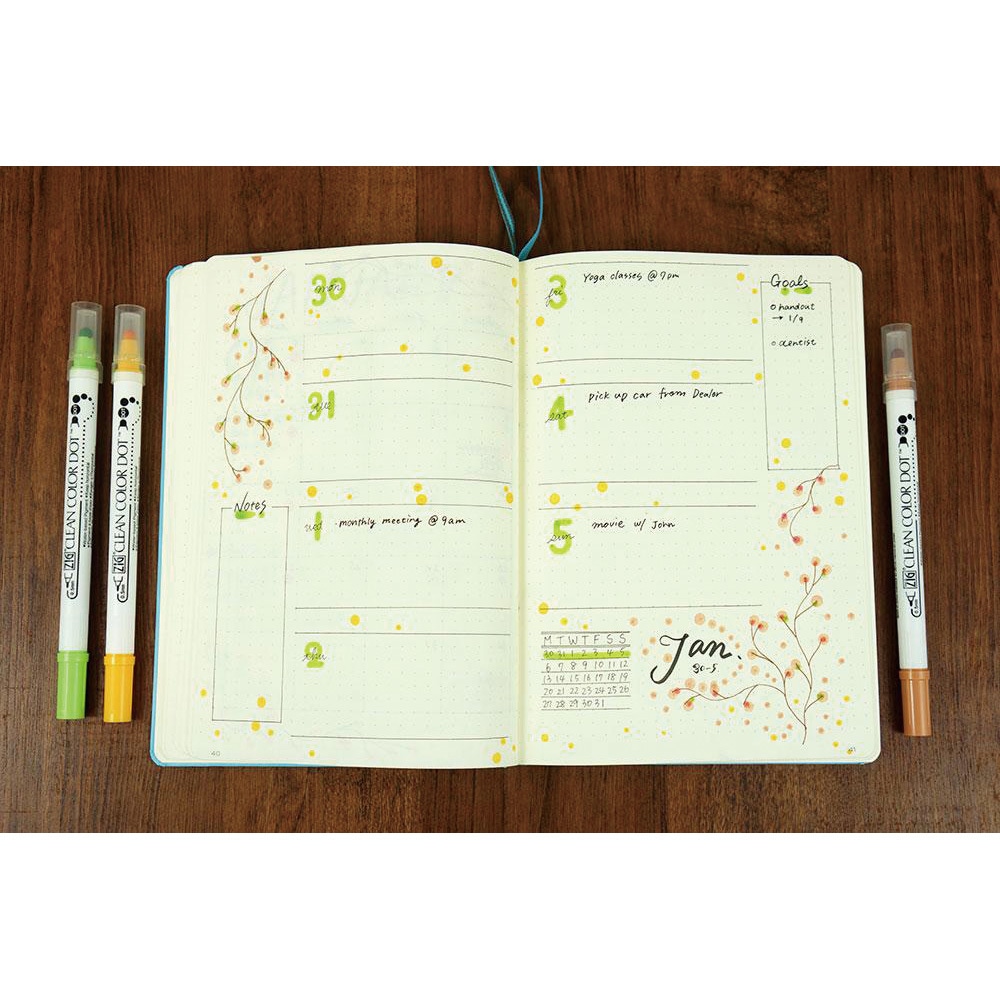 30
mon
31
tue
Notes
1
wed
·monthly meeting @ 9am
2
thu
40
3
fri
Yoga classes @ 7pm
4
sat
pick up car from Dealer
5
sun
movie w/ John
Goals
o handout
→ 1/9
o dentist
M T W T F S S
30 31 1 2 3 4 5
6 7 8 9 10 11 12
13 14 15 16 17 18 19
20 21 22 23 24 25 26
27 28 29 30 31
Jan.
30-5
41
ZIG CLEAN COLOR DOT™
0.5mm
DOT
ZIG CLEAN COLOR DOT™
0.5mm
DOT
ZIG CLEAN COLOR DOT™
0.5mm
DOT